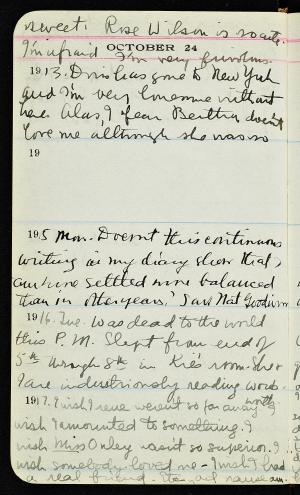 sweet. Rose Wilson is so cute.
I'm afraid I'm very frivolous.
OCTOBER 24
1913. Doris has gone to New York
and I'm very lonesome without
her. Alas, I fear Bertha doesn't
love me although she was so
19
1915 Mon. Doesn't this continuous
writing in my diary show that I
am more settled more balanced
than in other years? Saw Nat Goodwin
1916. Tue. Was dead to the world
this P.M. Slept from end of
5th through 8th in K's room. She &
I are industriously reading words-
worth
1917. I wish I were so far away I
wish I amounted to something. I
wish Miss Onley wasn't so superior. I
wish somebody loved me - I wish I had
a real friend.